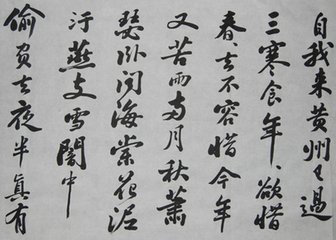 自我来黄州已過
三寒食年〻欲惜
春〻去不容惜今年
又苦雨兩月秋蕭
瑟卧聞海棠花泥
汙燕支雪闇中
偷負去夜半真有